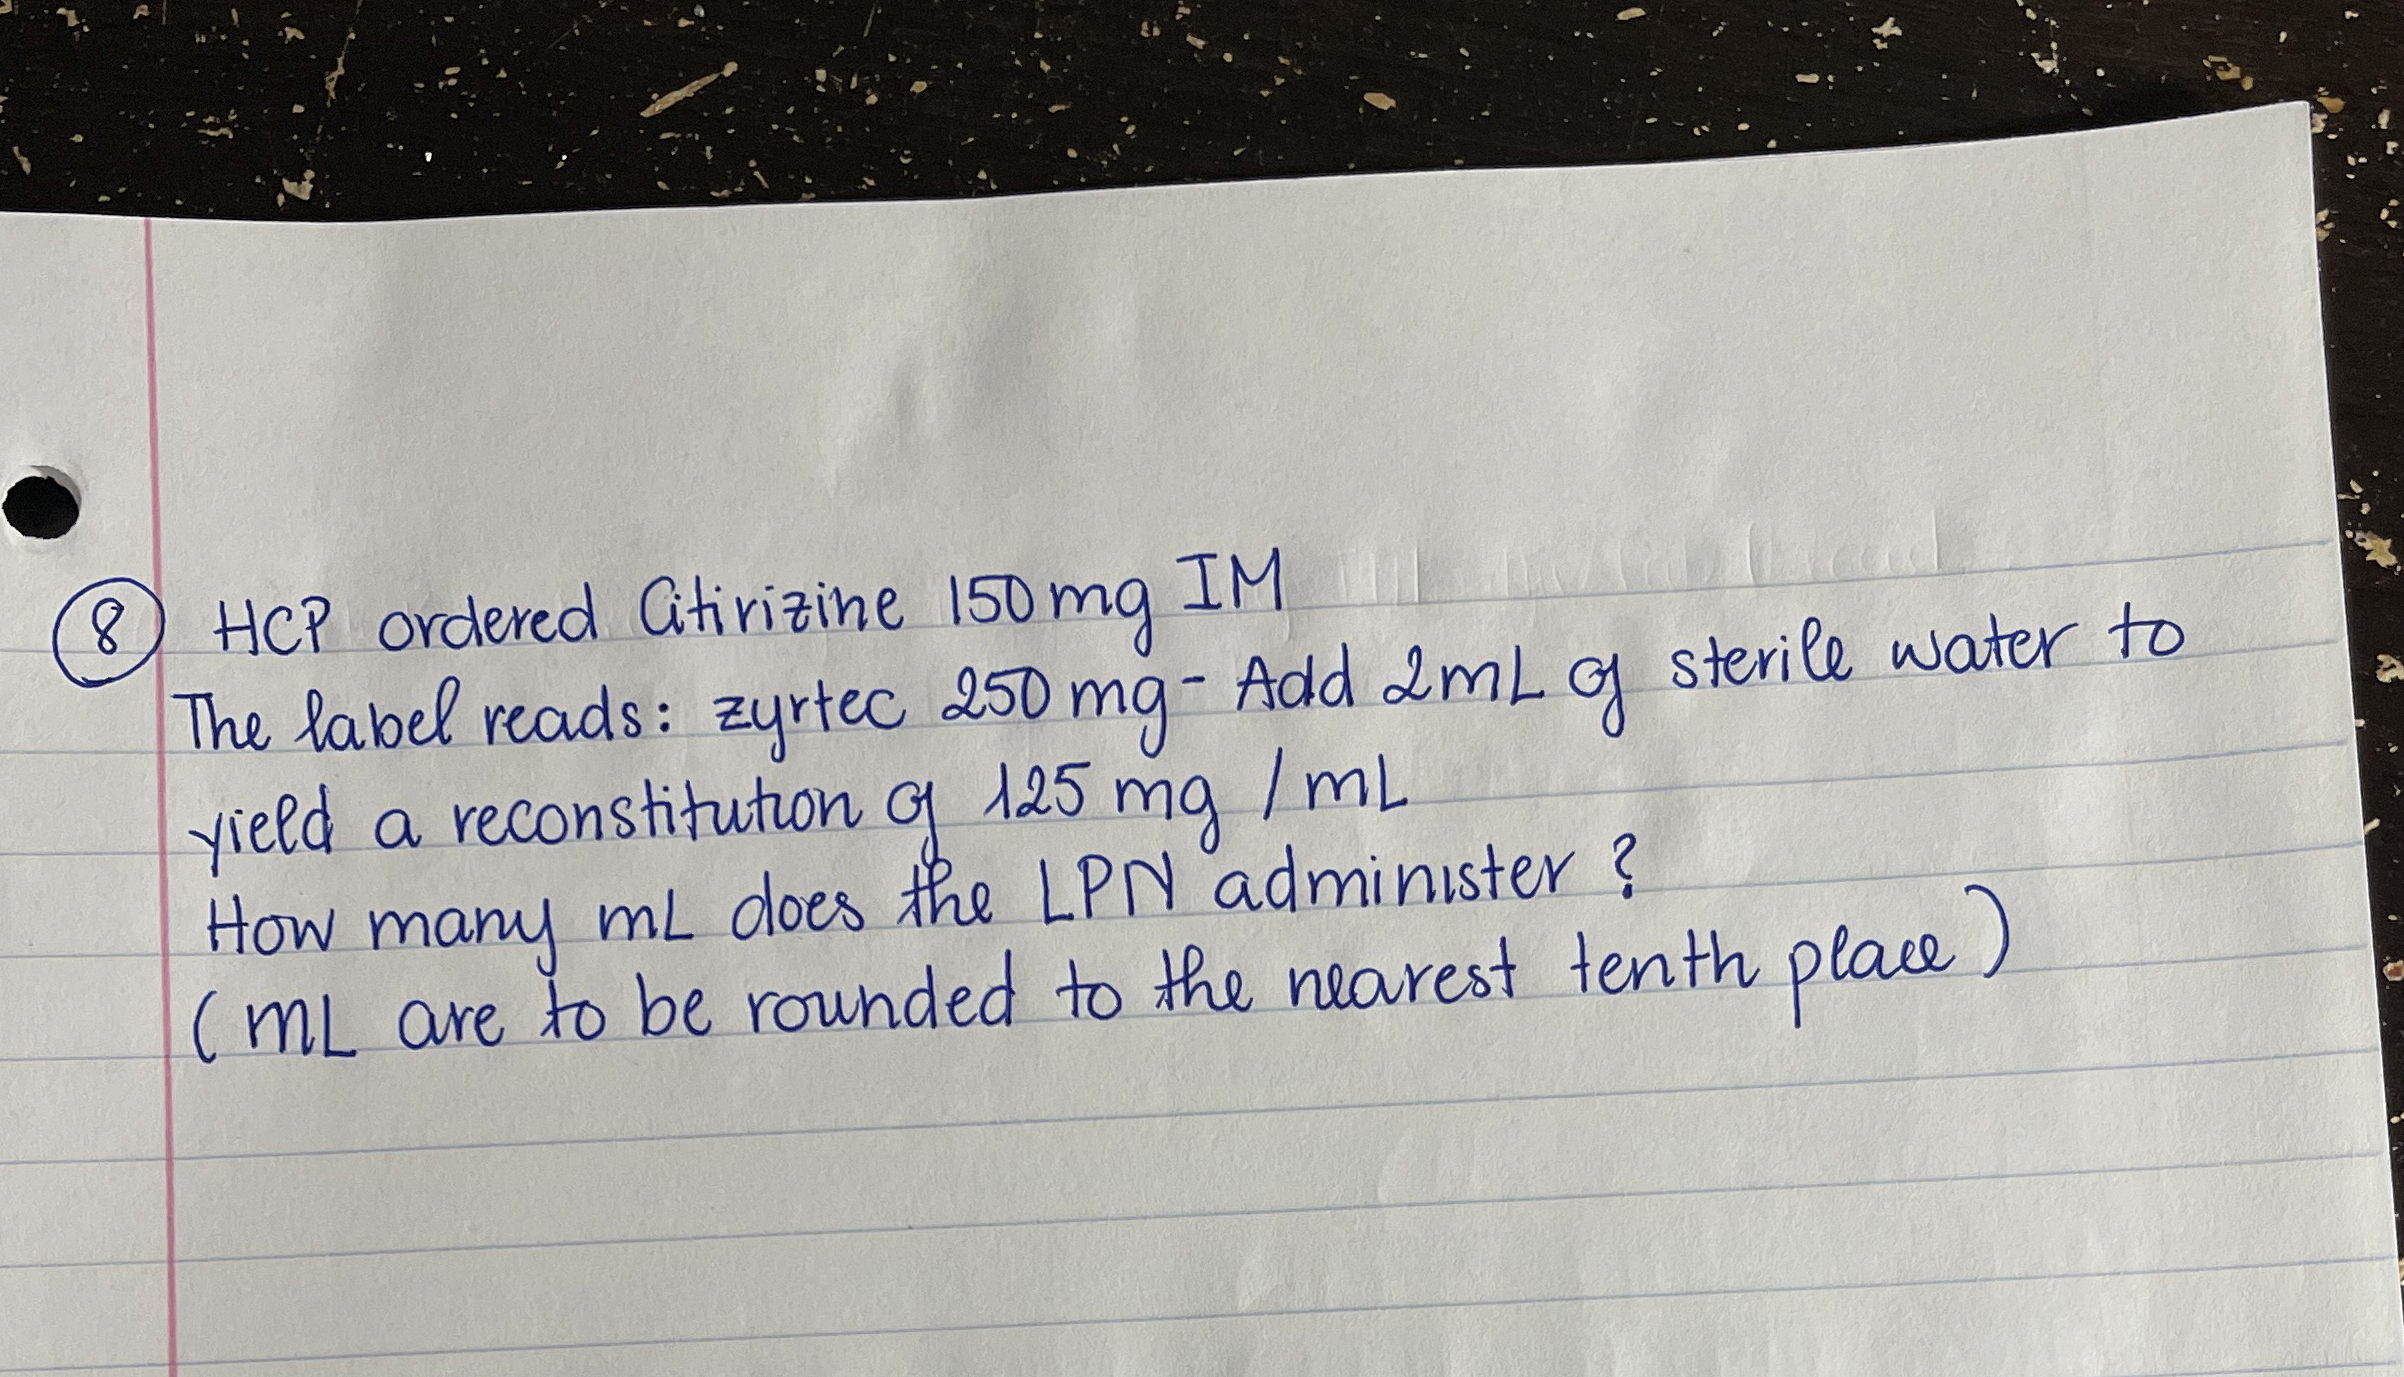 8 HCP ordered Citirizine 150 mg IM
The label reads: zyrtec 250 mg - Add 2 mL of sterile water to
yield a reconstitution of 125 mg / mL
How many mL does the LPN administer ?
( mL are to be rounded to the nearest tenth place )